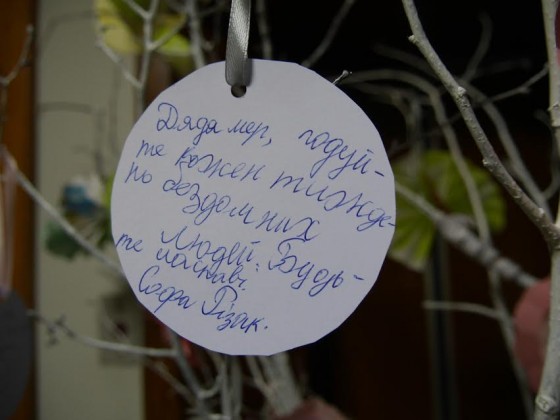 Дядя мер, годуй-
те кожен тижде-
по бездомних
людей. Будь-
те ласкаві.
Софа Гізак.